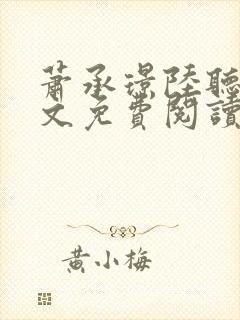 蕭承璟陸聽
文免費閱讀
黃小梅